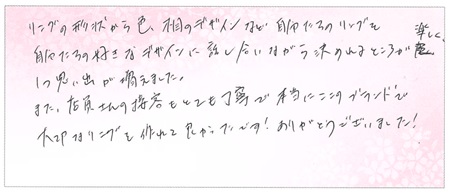 リングの形状から色、柄のデザインなど自分たちのリングを
自分たちの好きなデザインに話し合いながら決めれるところが楽しく、
1つ思い出が増えました。
また、店員さんの接客もとても丁寧で本当にここのブランドで
大切なリングを作れて良かったです!ありがとうございました!